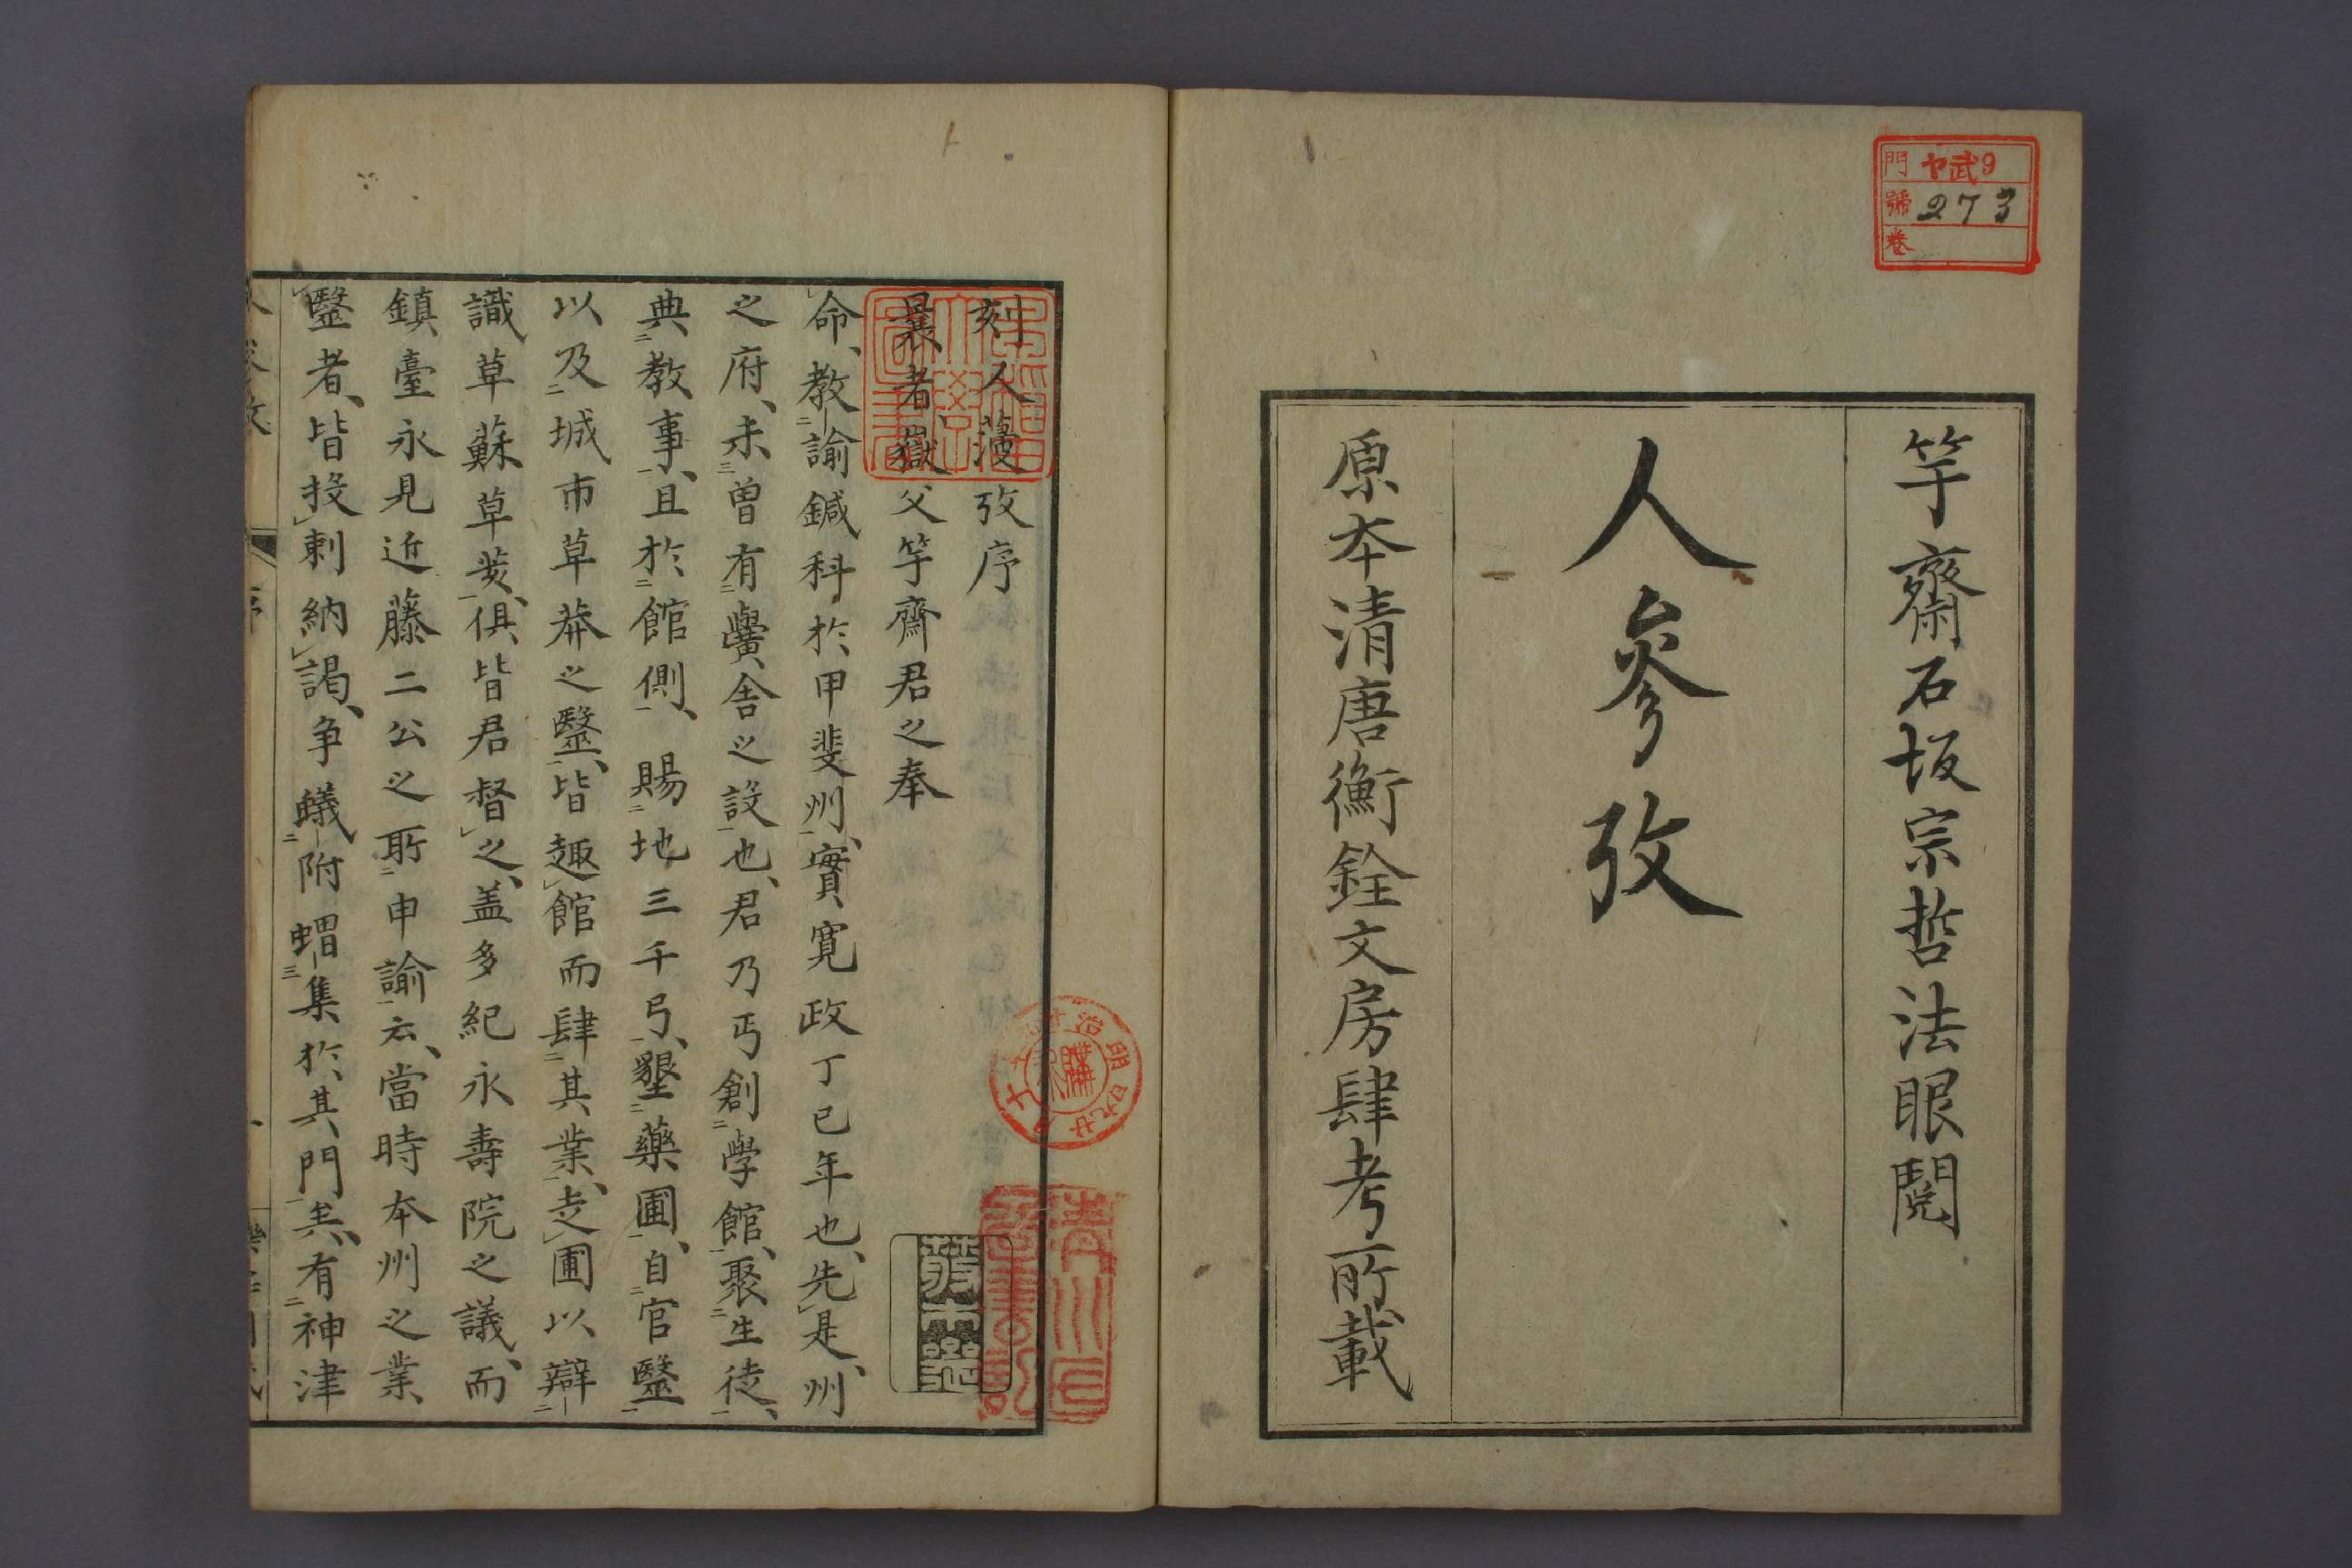 門 ヤ武9
號 273
卷
竽齋石坂宗哲法眼閱
人參攷
原本清唐衡銓文房肆考所載
刻人薓攷序
曩者嶽父竽齋君之奉
命教諭鍼科於甲斐州實寬政丁巳年也先是州
之府未曾有黌舍之設也君乃丐創學館聚生徒
典教事且於館側賜地三千弓墾藥圃自官醫
以及城市草莽之醫皆趣館而肆其業赱圃以辯
識草蘇草荄俱皆君督之盖多紀永壽院之議而
鎮臺永見近藤二公之所申諭云當時本州之業
醫者皆投刺納謁爭蟻附蝟集於其門矣有神津